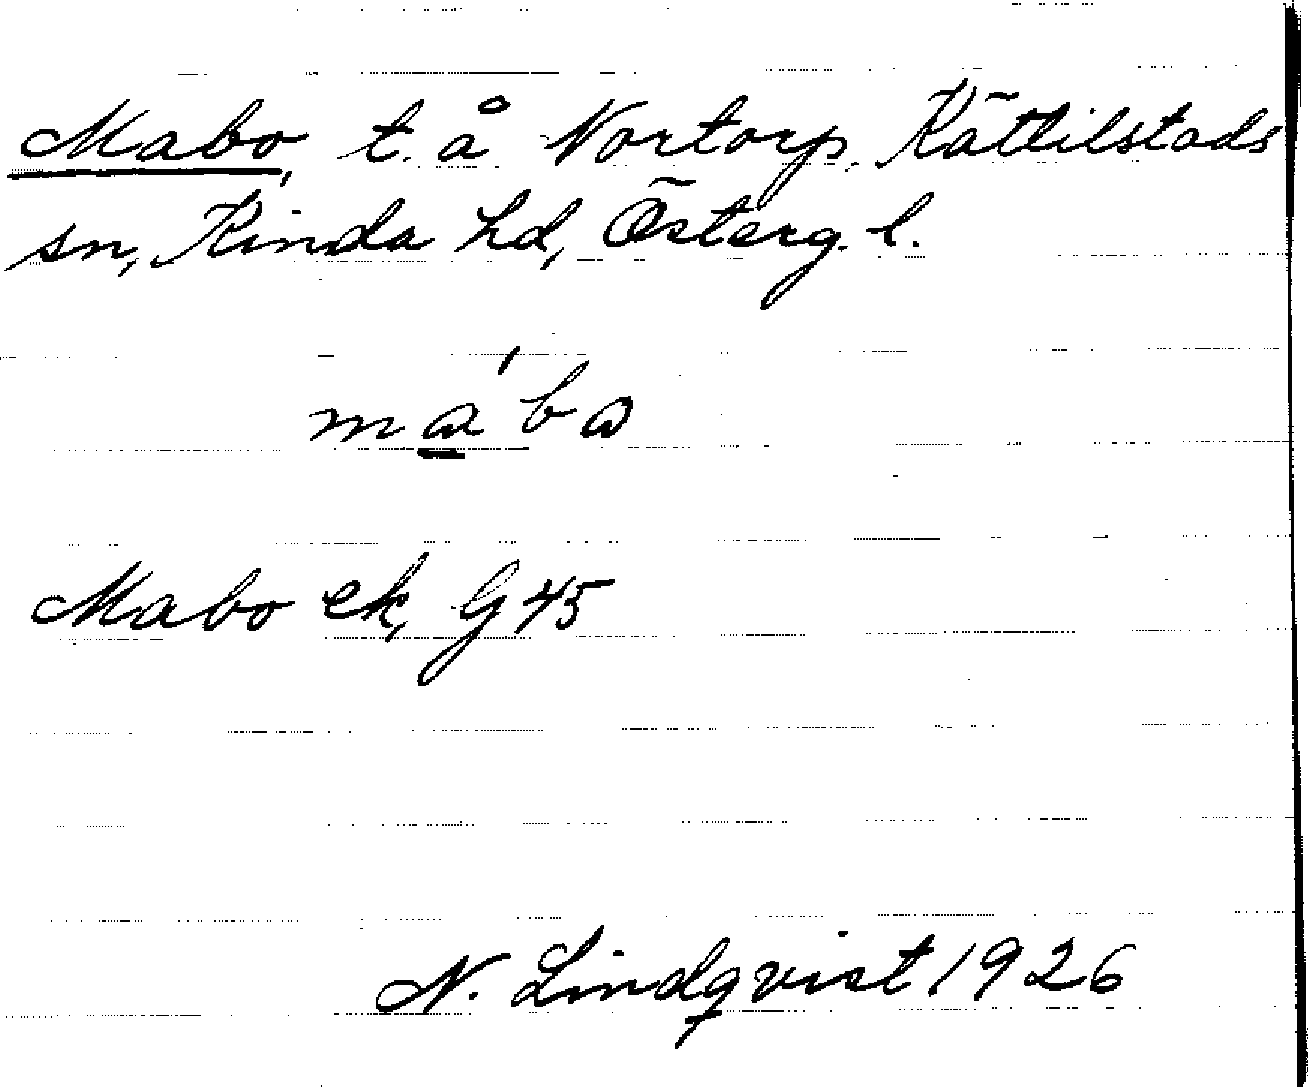 Mabo, t. å Nortorp, Kättilstads
sn, Kinda hd, Österg. l.
mɑ́bɷ
Mabo ek, G 45
N. Lindqvist 1926